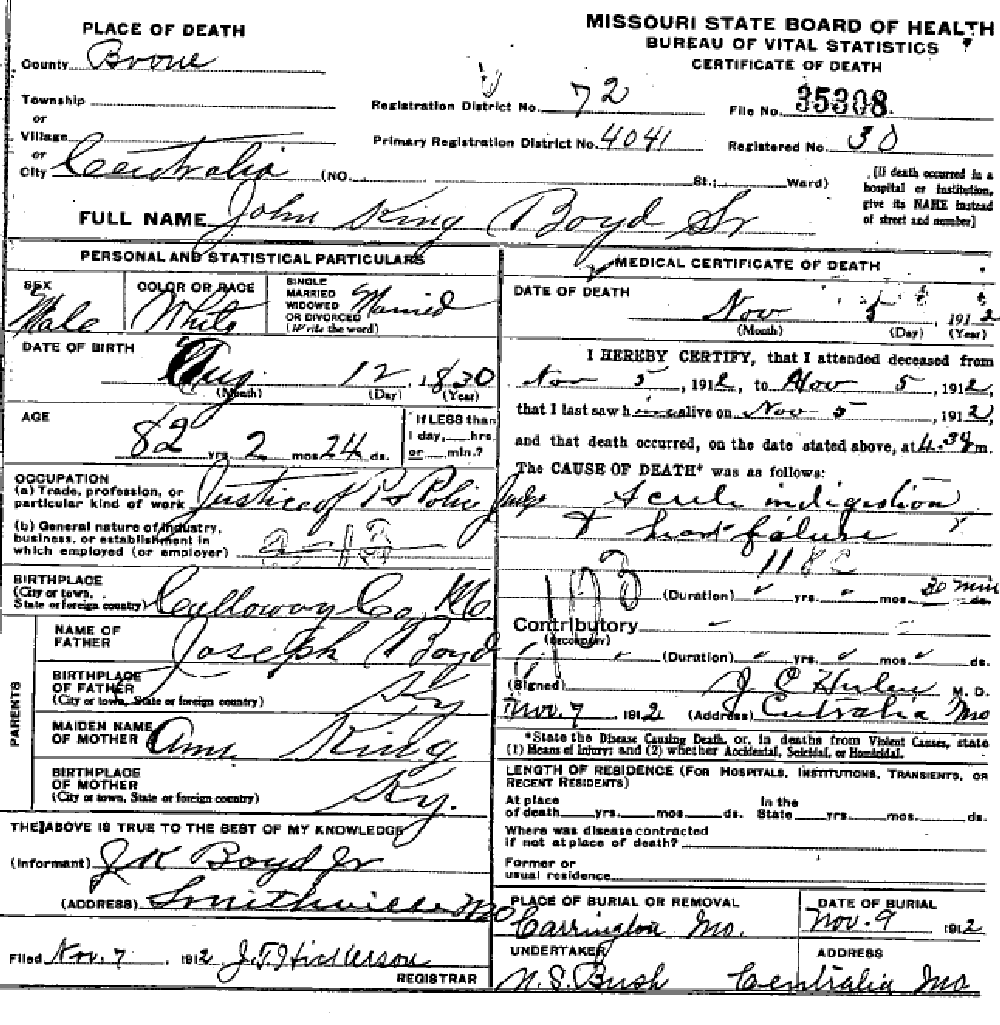 MISSOURI STATE BOARD OF HEALTH
BUREAU OF VITAL STATISTICS
CERTIFICATE OF DEATH
PLACE OF DEATH
County Boone
Township
or
Village
or
City Centralia (NO. St.; Ward)
Registration District No. 72
File No. 35308
Primary Registration District No. 4041
Registered No. 30
[If death occurred in a
hospital or institution,
give its NAME instead
of street and number]
FULL NAME John King Boyd Sr
PERSONAL AND STATISTICAL PARTICULARS
SEX
Male
COLOR OR RACE
White
SINGLE
MARRIED
WIDOWED
OR DIVORCED
(Write the word)
Married
DATE OF BIRTH
Aug 12, 1830
(Month) (Day) (Year)
AGE
82 yrs. 2 mos. 24 ds.
If LESS than
1 day, hrs.
or min.?
OCCUPATION
(a) Trade, profession, or
particular kind of work Justice of P & Police Judge
(b) General nature of industry,
business, or establishment in
which employed (or employer)
BIRTHPLACE
(City or town,
State or foreign country) Calloway Co. Mo
PARENTS
NAME OF
FATHER Joseph Boyd
BIRTHPLACE
OF FATHER
(City or town, State or foreign country) Ky
MAIDEN NAME
OF MOTHER Ann King
BIRTHPLACE
OF MOTHER
(City or town, State or foreign country) Ky.
THE ABOVE IS TRUE TO THE BEST OF MY KNOWLEDGE
(Informant) J K Boyd Jr
(ADDRESS) Smithville Mo
Filed Nov. 7 1912 J.T. Hickerson
REGISTRAR
MEDICAL CERTIFICATE OF DEATH
DATE OF DEATH
Nov 5 1912
(Month) (Day) (Year)
I HEREBY CERTIFY, that I attended deceased from
Nov 5, 1912, to Nov 5, 1912,
that I last saw h alive on Nov 5, 1912,
and that death occurred, on the date stated above, at 4.30 m.
The CAUSE OF DEATH* was as follows:
Acute indigestion
& heart failure
118C
103
(Duration) yrs. mos. 30 min ds.
Contributory
(SECONDARY)
(Duration) yrs. mos. ds.
(Signed) M. D.
Nov. 7 1912 (Address) Centralia Mo
*State the Disease Causing Death, or, in deaths from Violent Causes, state
(1) Means of Injury; and (2) whether Accidental, Suicidal, or Homicidal.
LENGTH OF RESIDENCE (FOR HOSPITALS, INSTITUTIONS, TRANSIENTS, OR
RECENT RESIDENTS)
At place
of death yrs. mos. ds.
In the
State yrs. mos. ds.
Where was disease contracted
if not at place of death?
Former or
usual residence
PLACE OF BURIAL OR REMOVAL
Carrington Mo.
DATE OF BURIAL
Nov. 9 1912
UNDERTAKER
N. S. Bush
ADDRESS
Centralia Mo